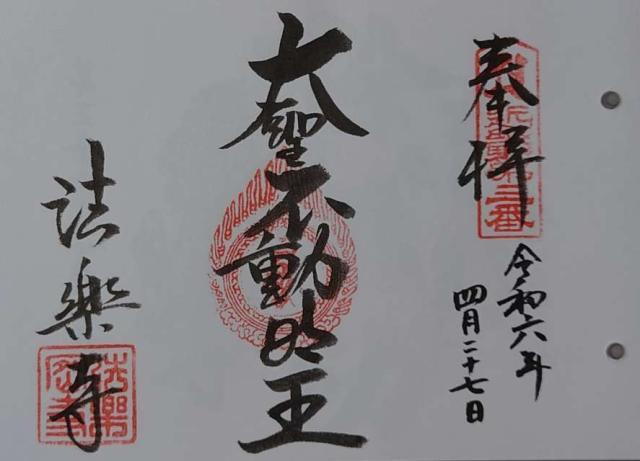 奉拝
令和六年
四月二十七日
大聖不動明王
法樂寺